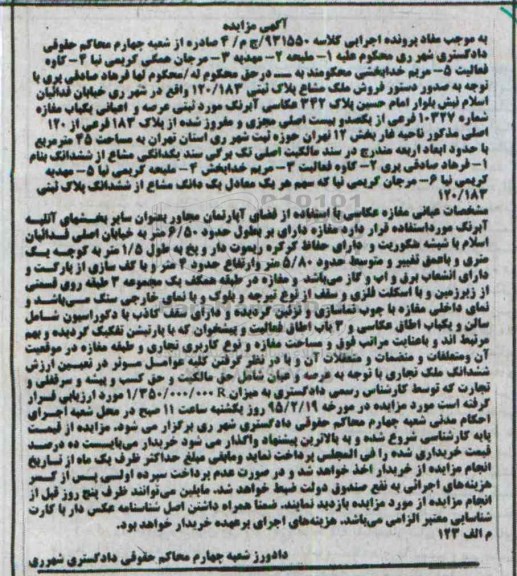 آگهی مزایده
به موجب مفاد پرونده اجرایی کلاسه ۹۳۱۵۵۰/ج م/ ۴ صادره از شعبه چهارم محاکم حقوقی
دادگستری شهر ری محکوم علیه ۱- ملیحه ۲- مهدیه ۳- مرجان همگی کریمی نیا ۴- کاوه
فعالیت ۵- مریم خدابخشی محکومند به ـــ درحق محکوم له /محکوم لها فرهاد صادقی پری با
توجه به صدور دستور فروش ملک مشاع پلاک ثبتی ۱۲۰/۱۸۳ واقع در شهر ری خیابان فدائیان
اسلام نبش بلوار امام حسین پلاک ۳۳۲ عکاسی آبرنگ مورد ثبتی عرصه و اعیانی یکباب مغازه
شماره ۱۰۳۲۷ فرعی از یکصدو بیست اصلی مجزی و مفروز شده از پلاک ۱۸۳ فرعی از ۱۲۰
اصلی مذکور ناحیه فار بخش ۱۲ تهران حوزه ثبت شهر ری استان تهران به مساحت ۳۵ مترمربع
با حدود ابعاد اربعه مندرج در سند مالکیت اصلی تک برگی سند یکدانگی مشاع از ششدانگ بنام
۱- فرهاد صادقی پری ۲- کاوه فعالیت ۳- مریم خدابخشی ۴- ملیحه کریمی نیا ۵- مهدیه
کریمی نیا ۶- مرجان کریمی نیا که سهم هر یک معادل یک دانگ مشاع از ششدانگ پلاک ثبتی
۱۲۰/۱۸۳
مشخصات عیانی مغازه عکاسی با استفاده از فضای آپارتمان مجاور بعنوان سایر بخشهای آتلیه
آبرنگ مورداستفاده قرار دارد مغازه دارای بر بطول حدود ۶/۵۰ متر به خیابان اصلی فدائیان
اسلام با شیشه سکوریت و دارای حفاظ کرکره ریموت دار و پخ به طول ۱/۵ متر به کوچه یک
متری و باعمق تغییر و متوسط حدود ۵/۸۰ متر وارتفاع حدود ۳ متر و با کف سازی از پارکت و
دارای انشعاب برق و آب و گاز می‌باشد و مغازه در طبقه همکف یک مجموعه ۳ طبقه روی قسمتی
از زیرزمین و با اسکلت فلزی و سقف از نوع تیرچه و بلوک و با نمای خارجی سنگ می‌باشد و
نمای داخلی مغازه با چوب نماسازی و تزئین گردیده و دارای سقف کاذب با دکوراسیون شامل
سالن و یکباب اطاق عکاسی و ۳ باب اطاق فعالیت و پیشخوان که با پارتیشن تفکیک گردیده و بهم
مرتبط اند و باعنایت مراتب فوق و مساحت مغازه و نوع کاربری تجاری و طبقه مغازه در موقعیت
آن ومتعلقات و منضمات و متعلقات آن و با در نظر گرفتن کلیه عوامل موثر در تعیین ارزش
ششدانگ ملک تجاری با توجه به عرصه و عیان شامل حق مالکیت و حق کسب و پیشه و سرقفلی و
تجارت که توسط کارشناس رسمی دادگستری به میزان R ۱/۳۵۰/۰۰۰/۰۰۰ مورد ارزیابی قرار
گرفته است مورد مزایده در مورخه ۹۵/۲/۱۹ روز یکشنبه ساعت ۱۱ صبح در محل شعبه اجرای
احکام مدنی شعبه چهارم محاکم حقوقی دادگستری شهر ری برگزار می شود. مزایده از قیمت
پایه کارشناسی شروع شده و به بالاترین پیشنهاد واگذار می شود خریدار می‌بایست ده درصد
قیمت خریداری شده را فی المجلس پرداخت نماید ومابقی مبلغ حداکثر ظرف یک ماه از تاریخ
انجام مزایده از خریدار اخذ خواهد شد و در صورت عدم پرداخت سپرده اولی پس از کسر
هزینه‌های اجرائی به نفع صندوق دولت ضبط خواهد شد. مایلین می‌توانند ظرف پنج روز قبل از
انجام مزایده از مورد مزایده بازدید نمایند. ضمنا همراه داشتن اصل شناسنامه عکس دار یا کارت
شناسایی معتبر الزامی می‌باشد. هزینه‌های اجرای برعهده خریدار خواهد بود.
م الف ۱۲۳
دادورز شعبه چهارم محاکم حقوقی دادگستری شهرری